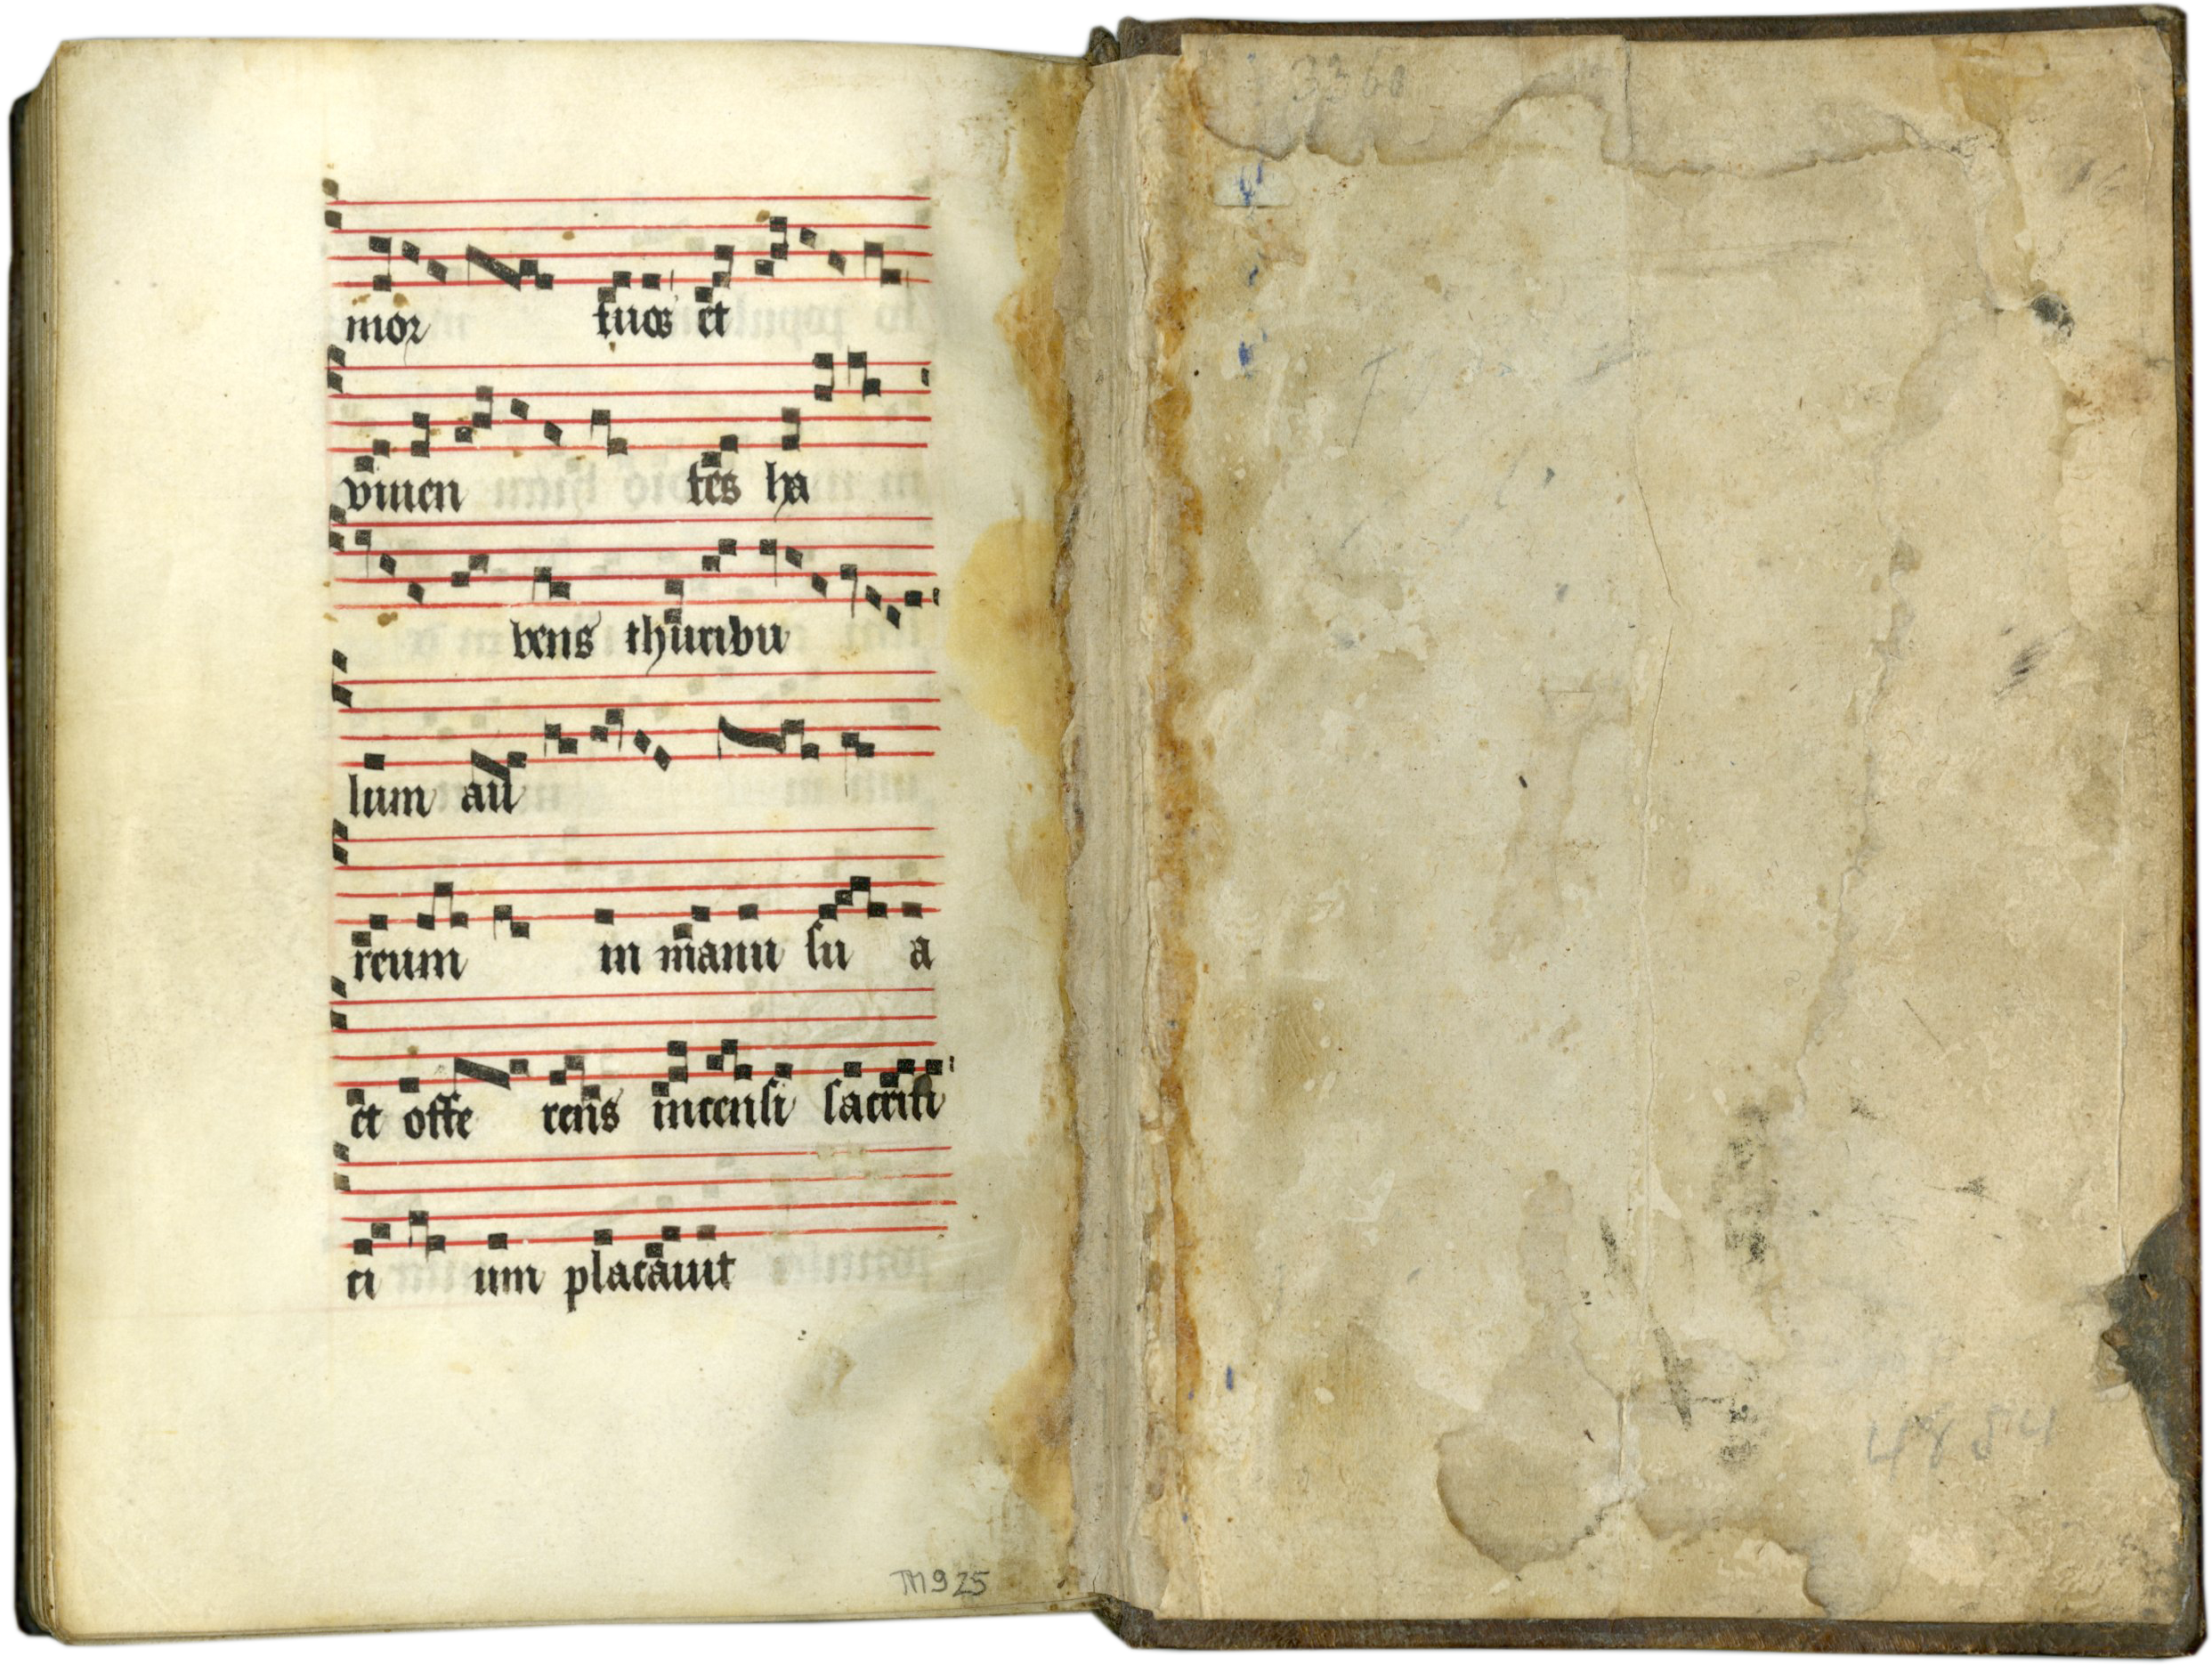 mor tuos et
viuen tes ha
bens thuribu
lum au
reum in manu su a
et offe rens incensi sacrifi
ci um placauit
TM 925
3360
4854